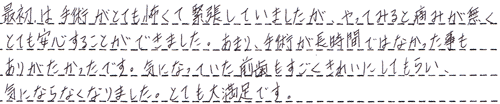 最初は手術がとても怖くて緊張していましたが、やってみると痛みが無く
とても安心することができました。あまり、手術が長時間ではなかった事も
ありがたかったです。気になっていた前歯もすごくきれいにしてもらい、
気にならなくなりました。とても大満足です。